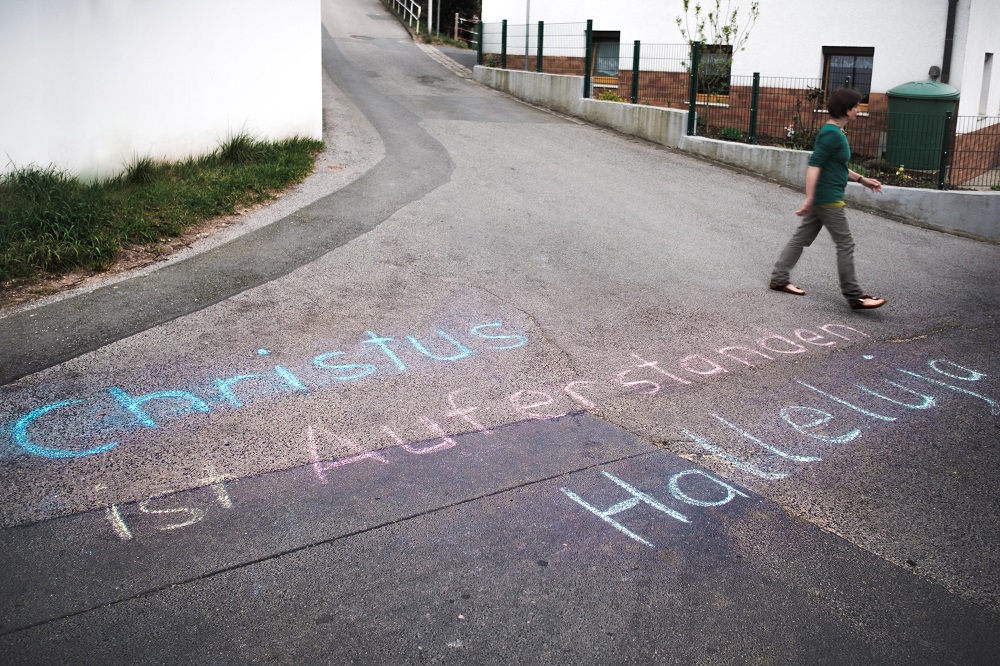 Christus
ist Auferstanden
Halleluja